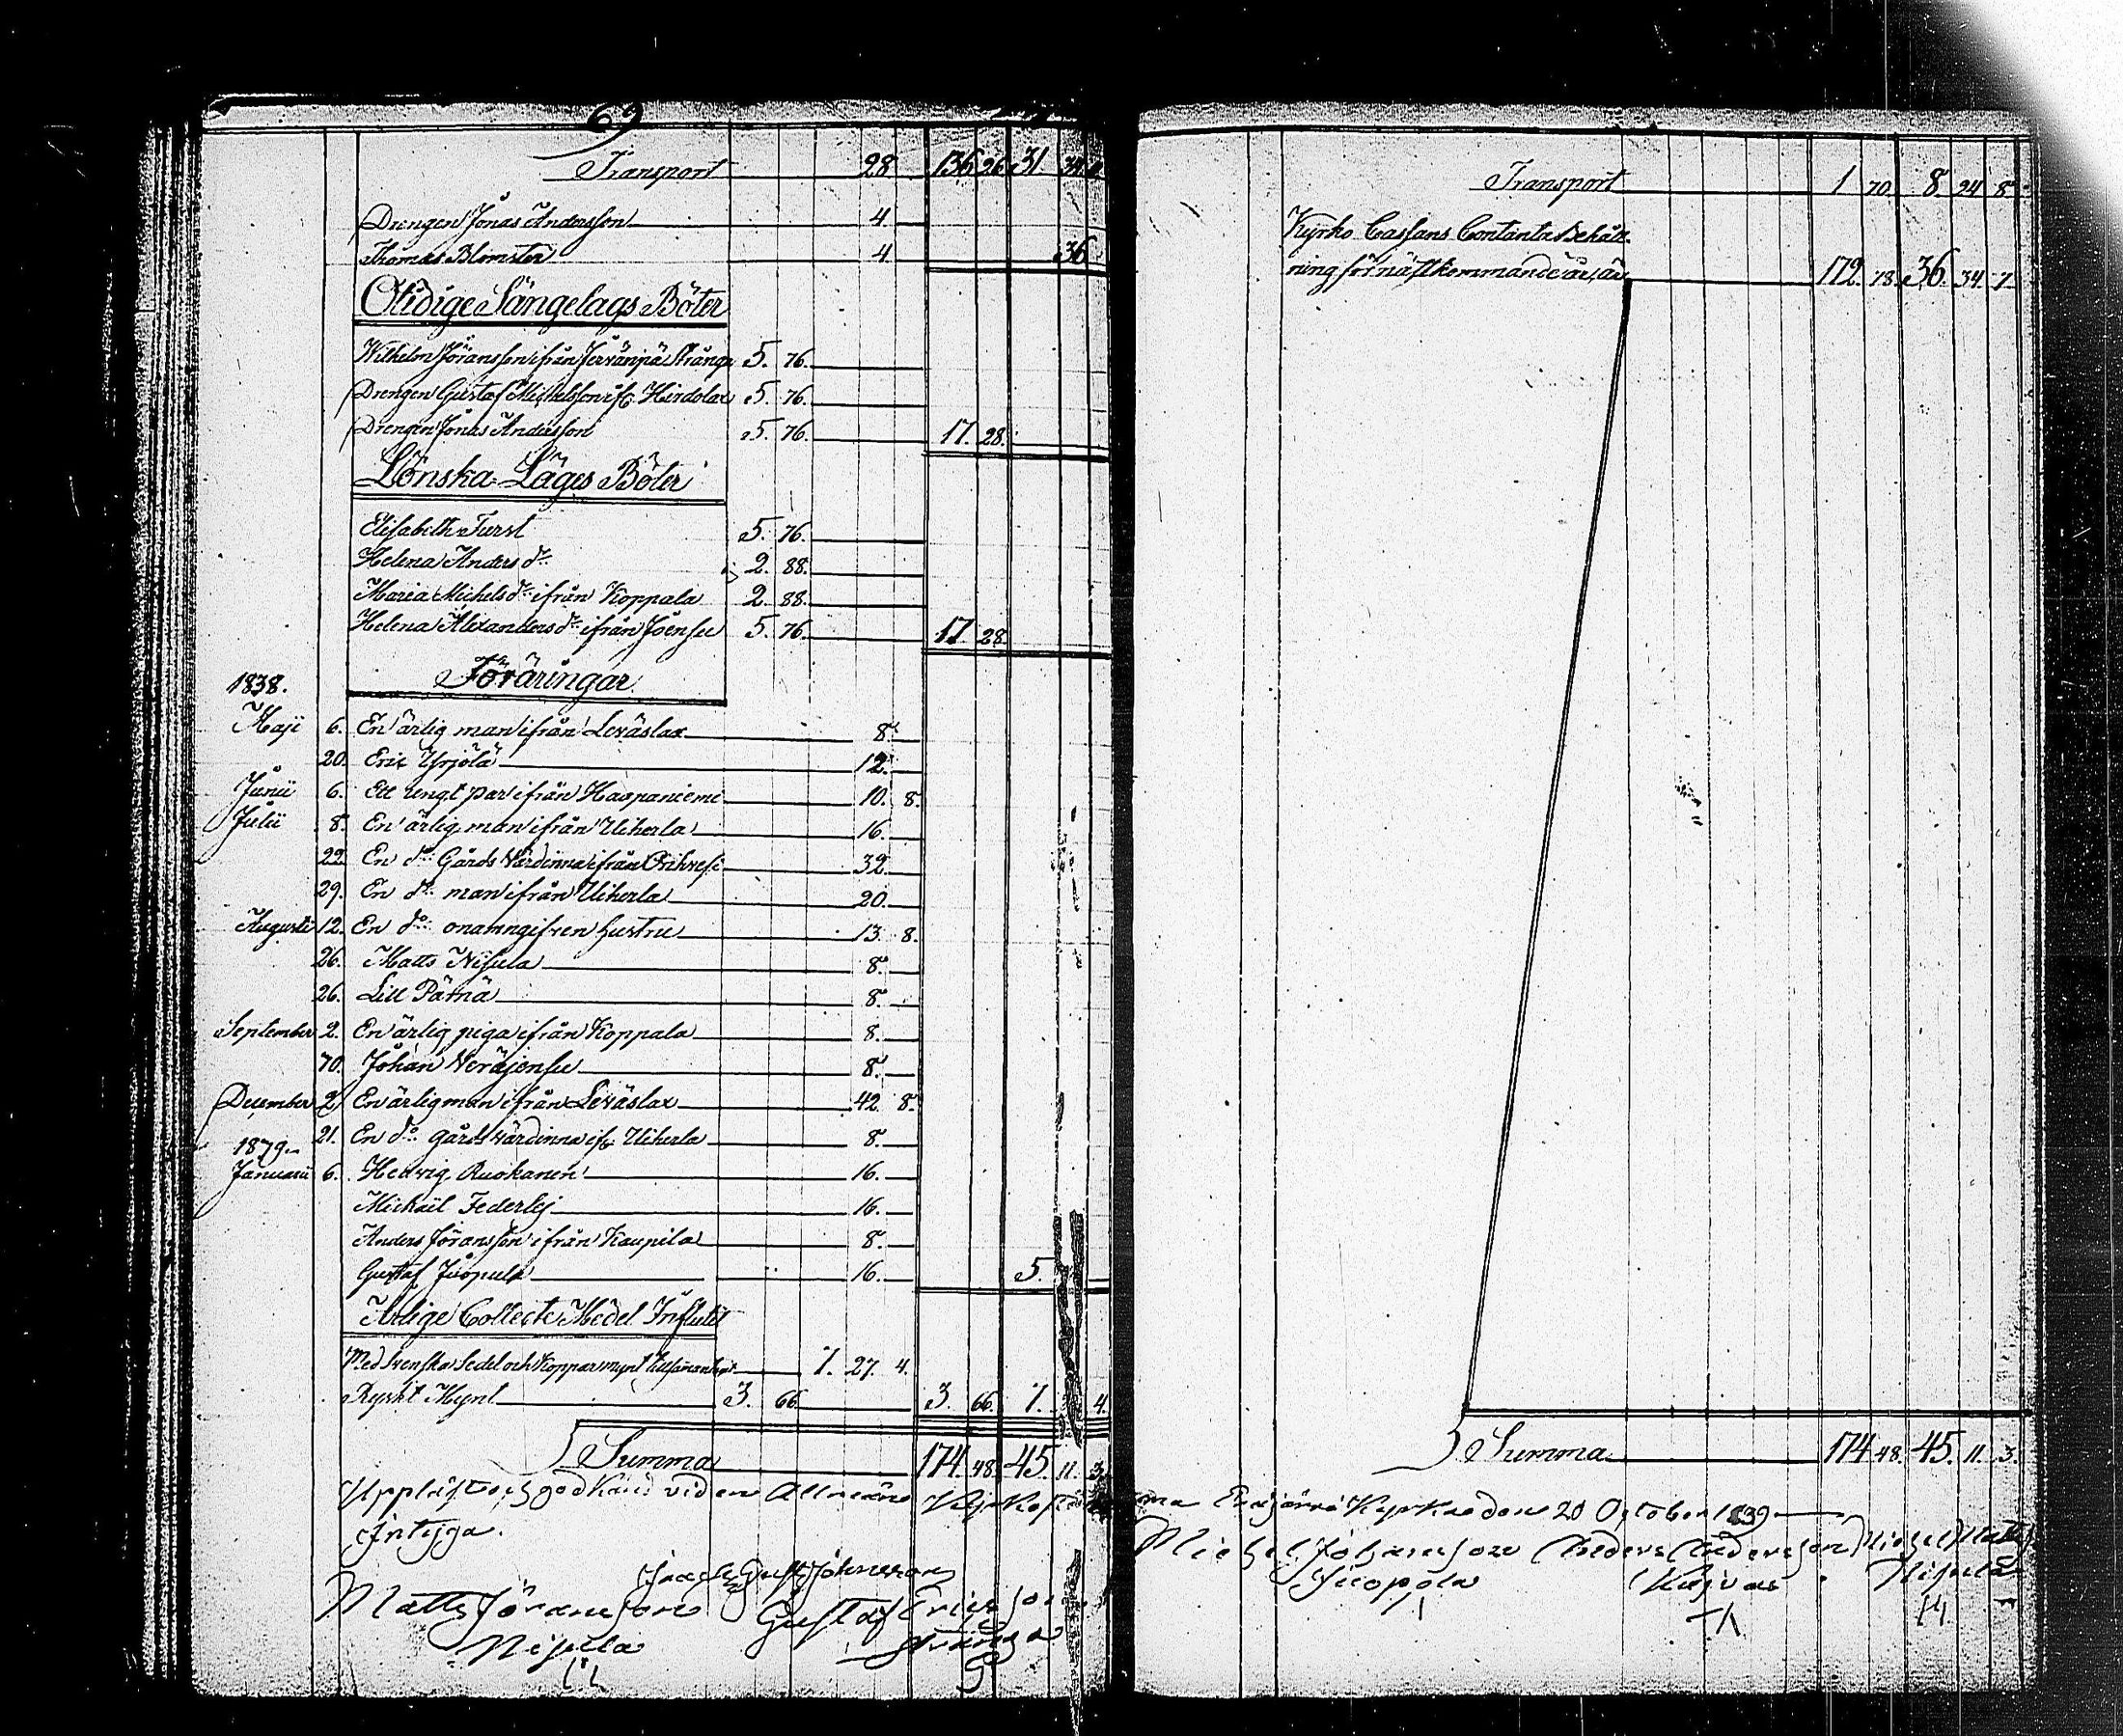 69
Transport 28 136 26 31. 34.
Drengen Jonas Andersson 4
Thomas Blomster 4 36
Otidige Sängelags Böter
Wilhelm Jöransson ifrån Jervänpä Strånga 5. 76.
Drengen Gustaf Michelsson ifr. Hirdolax 5. 76.
Drengen Jonas Andersson 5. 76. 17. 28.
Lönska Läges Böter
Elisabeth Furst 5. 76.
Helena Anders dr. 2. 88.
Maria Michels dr. ifrån Koppala 2. 88.
Helena Alexanders dr. ifrån Joensu 5. 76. 17. 28
Föräringar
1838.
Maji 6. En ärlig man ifrån Leväslax 8.
20. Eric Yrjölä 12.
Junii 6. Ett ungt par ifrån Haapaniemi 10. 8.
Julii 8. En ärlig man ifrån Uiherla 16.
22. En do. Gårds Värdinna ifrån Orihvesi 32.
29. En do. man ifrån Uiherla 20.
Augusti 12. En do. onamngifven hustru 13. 8.
26. Matts Nisula 8.
26. Lill Pätnä 8.
September 2. En ärlig piga ifrån Koppala 8.
70. Johan Veräjensu 8.
December 2 En ärlig man ifrån Leväslax 42. 8.
21. En do. gårds värdinna ifr. Uiherla 8.
1879.
Januarii 6. Hedvig Ruokanen 16.
Mickäel Federley 16.
Anders Jöransson ifrån Kaupila 8.
Gustaf Juopula 16. 5.
Årlige Collecte Medel Influtit
Med Svenska Sedel och Kopparmynt tillsamman 1. 27. 4.
Ryskt Mynt 3. 66 3. 66. 1. 4.
Summa 174. 48. 45. 11. 3.
Uppläst och godkänd vid en Allmän
Intyga.
Jacob Gust. Johnsson
Matts Jöransson Gustaf Ericsson
Nisula Strånga
Transport 1 70. 8. 24 8.
Kyrko Cassans Contanta Behåll-
ning för nästkommande år, är 172. 78. 36. 34. 7.
Summa 174 48. 45. 11. 3.
Enajärvi Kyrka den 20 October 1839
Michel Johansson Anders Andersson Michel Matts
Juopola Kujvas Nisula